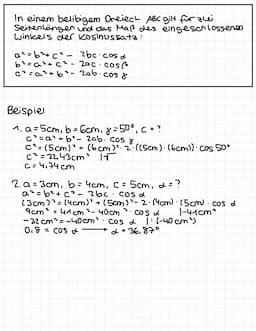 In einem beliebigem Dreieck ABC gilt für zwei
Seitenlängen und das Maß des eingeschlossenen
Winkels der Kosinussatz:
a² = b² + c² - 2bc · cos α
b² = a² + c² - 2ac · cos β
c² = a² + b² - 2ab · cos γ
Beispiel
1. a = 5cm, b = 6cm, γ = 50°, c = ?
c² = a² + b² - 2ab · cos γ
c² = (5cm)² + (6cm)² - 2 · ((5cm) · (6cm)) · cos 50°
c² = 22,43cm² |√
c = 4,74cm
2. a = 3cm, b = 4cm, c = 5cm, α = ?
a² = b² + c² - 2bc · cos α
(3cm)² = (4cm)² + (5cm)² - 2 · (4cm) · (5cm) · cos α
9cm² = 41cm² - 40cm² · cos α |-41cm²
-32cm² = -40cm² · cos α |:(-40cm²)
0,8 = cos α → α = 36,87°